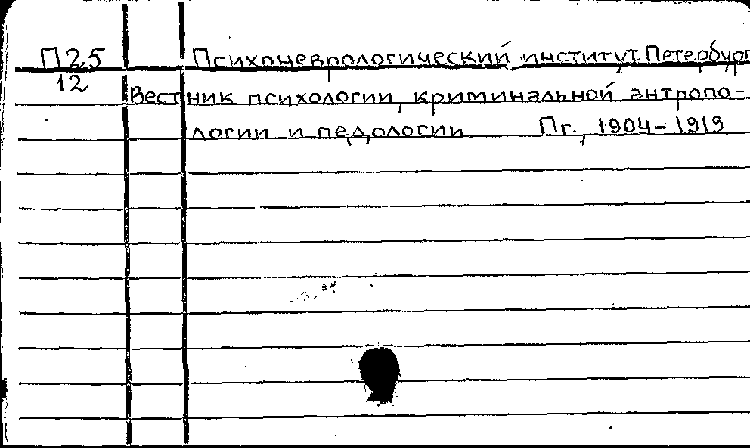 П25 Психоневрологический институт. Петербург
12
Вестник психологии, криминальной антропо-
логии и педологии Пг., 1904-1919